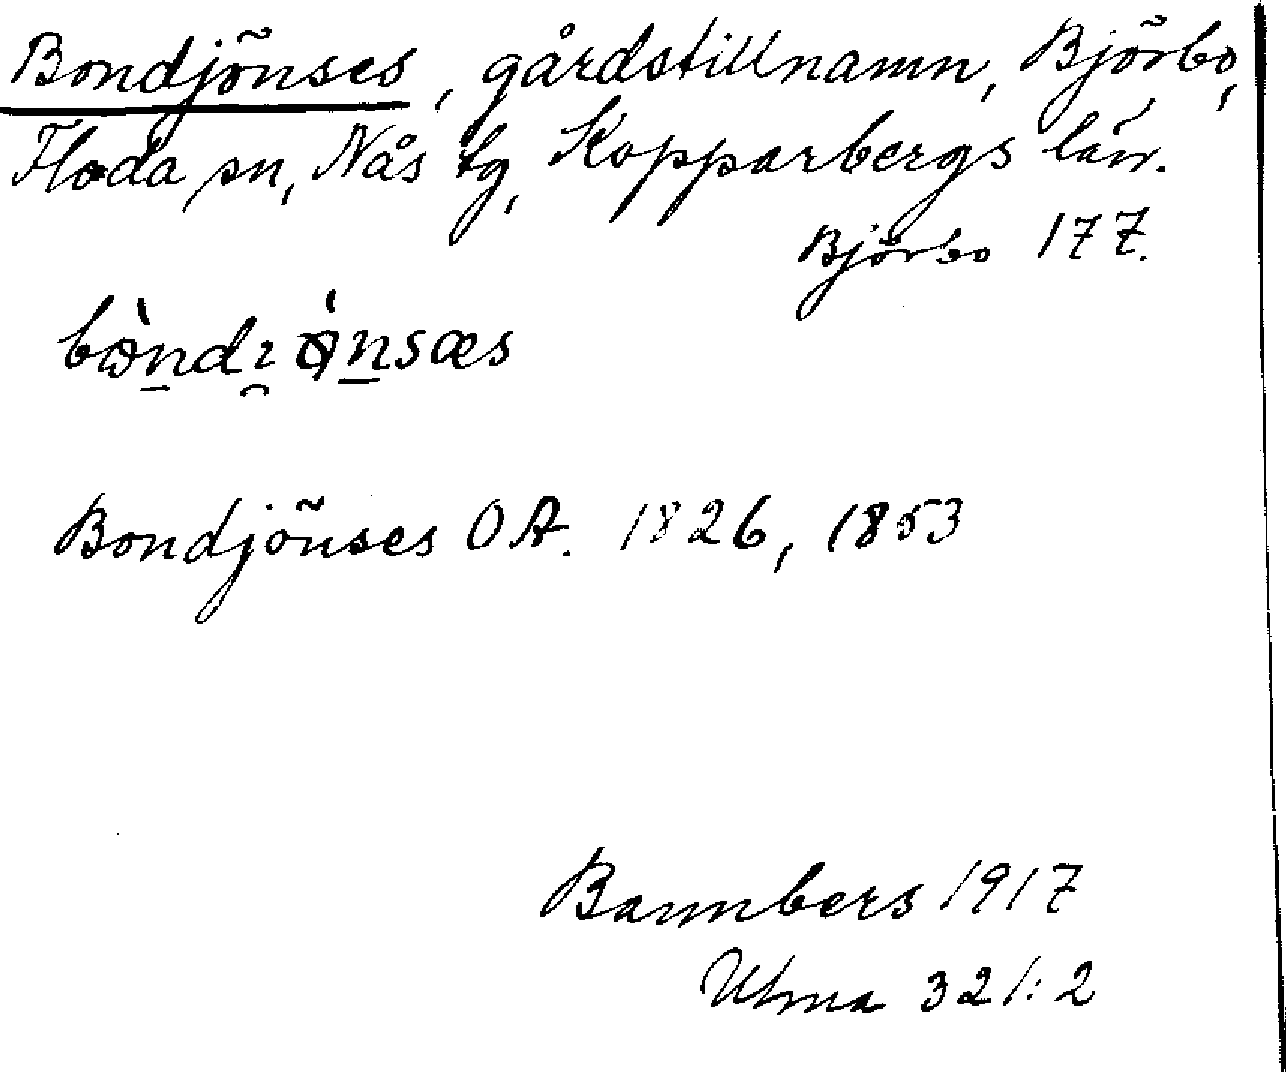 Bondjõnses, gårdstillnamn, Bjõrbo,
Floda sn, Nås tg, Kopparbergs län.
Bjõrbo 177.
Bondjõnses OA. 1826, 1853
Bannbers 1917
Ulma 321:2